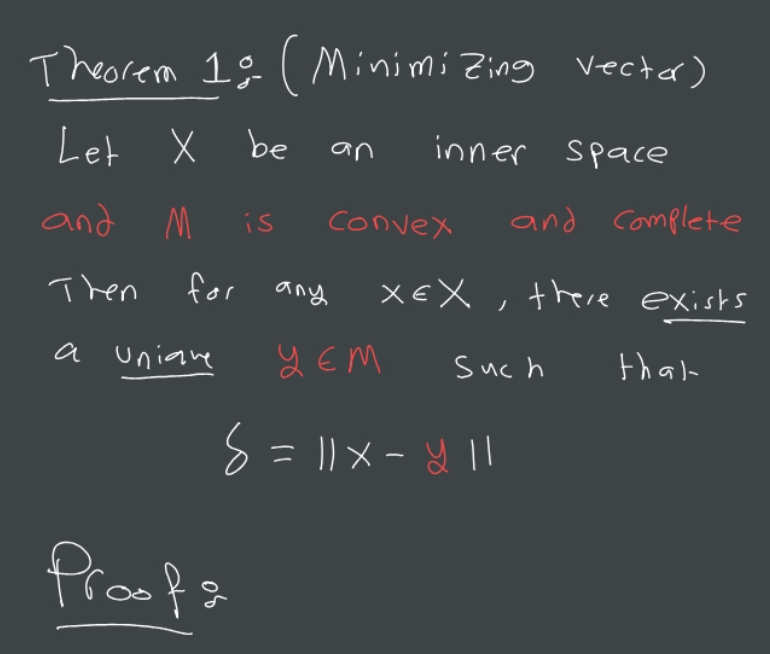 Theorem 1: (Minimizing vector)
Let X be an inner space
and M is convex and complete
Then for any x ∈ X, there exists
a unique y ∈ M such that
δ = ||x - y||
Proof: